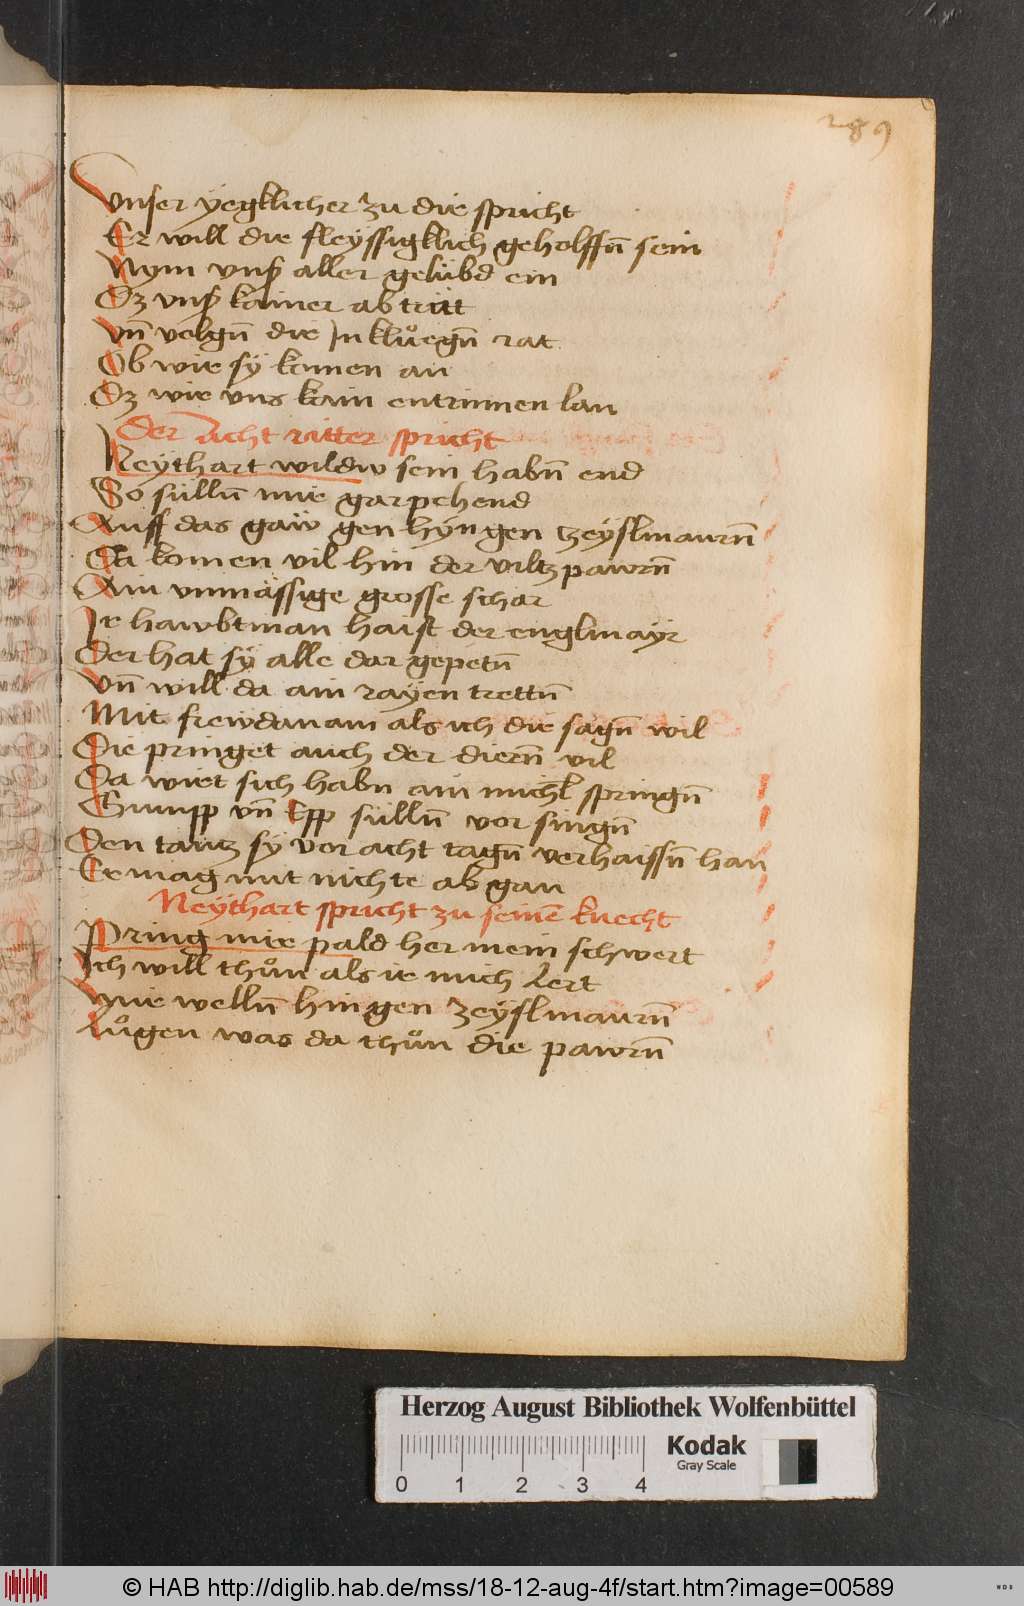 289
Vnser yegklicher zu die spricht
Er will die fleyssigklich geholffn̄ sein
Nym vnß aller gelübd ein
Dz vnß kainer ab tritt
Vn̄ volgn̄ die In klůegn̄ rat
Ob wir sÿ komen an
Dz wir vns kain entrinnen lan
Der Acht ritter spricht
Neÿthart wildw sein habn̄ end
So sülln̄ mir gar pehend
Auff das gaw gen hÿngen tzeÿslmaurn̄
Da komen vil hin der viltzpawrn̄
Ain vnmässige grosse schar
Ir hawbtman haist der englmayr
Der hat sÿ alle dar gepetn̄
Vn̄ will da ain rayen trettn̄
Mit frewdan am als ich die sagn̄ wil
Die pringet auch der diern̄ vil
Da wirt sich habn ain michl springn̄
Gumpp vn̄ Epp sülln̄ vor singn̄
Den tantz sÿ vor acht tagn̄ verhaissn̄ han
Er mag mit nichte ab gan
Neÿthart spricht zu seinē knecht
Pring mir pald her mein schwert
Ich will thůn als ir mich Lert
Wir welln̄ hin gen zeÿslmaurn̄
Lůgen was da thůn die pawrn̄
Herzog August Bibliothek Wolfenbüttel
0 1 2 3 4
Kodak
Gray Scale
© HAB http://diglib.hab.de/mss/18-12-aug-4f/start.htm?image=00589
WDB